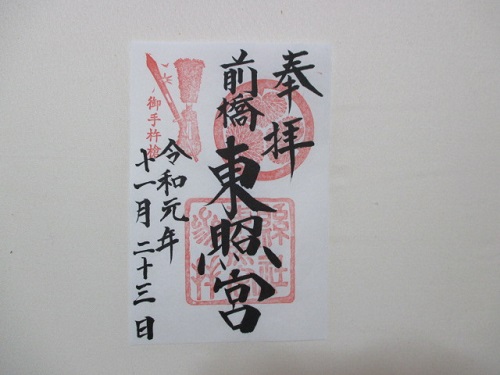 奉拝
前橋
東照宮
御手杵槍
令和元年
十一月二十三日